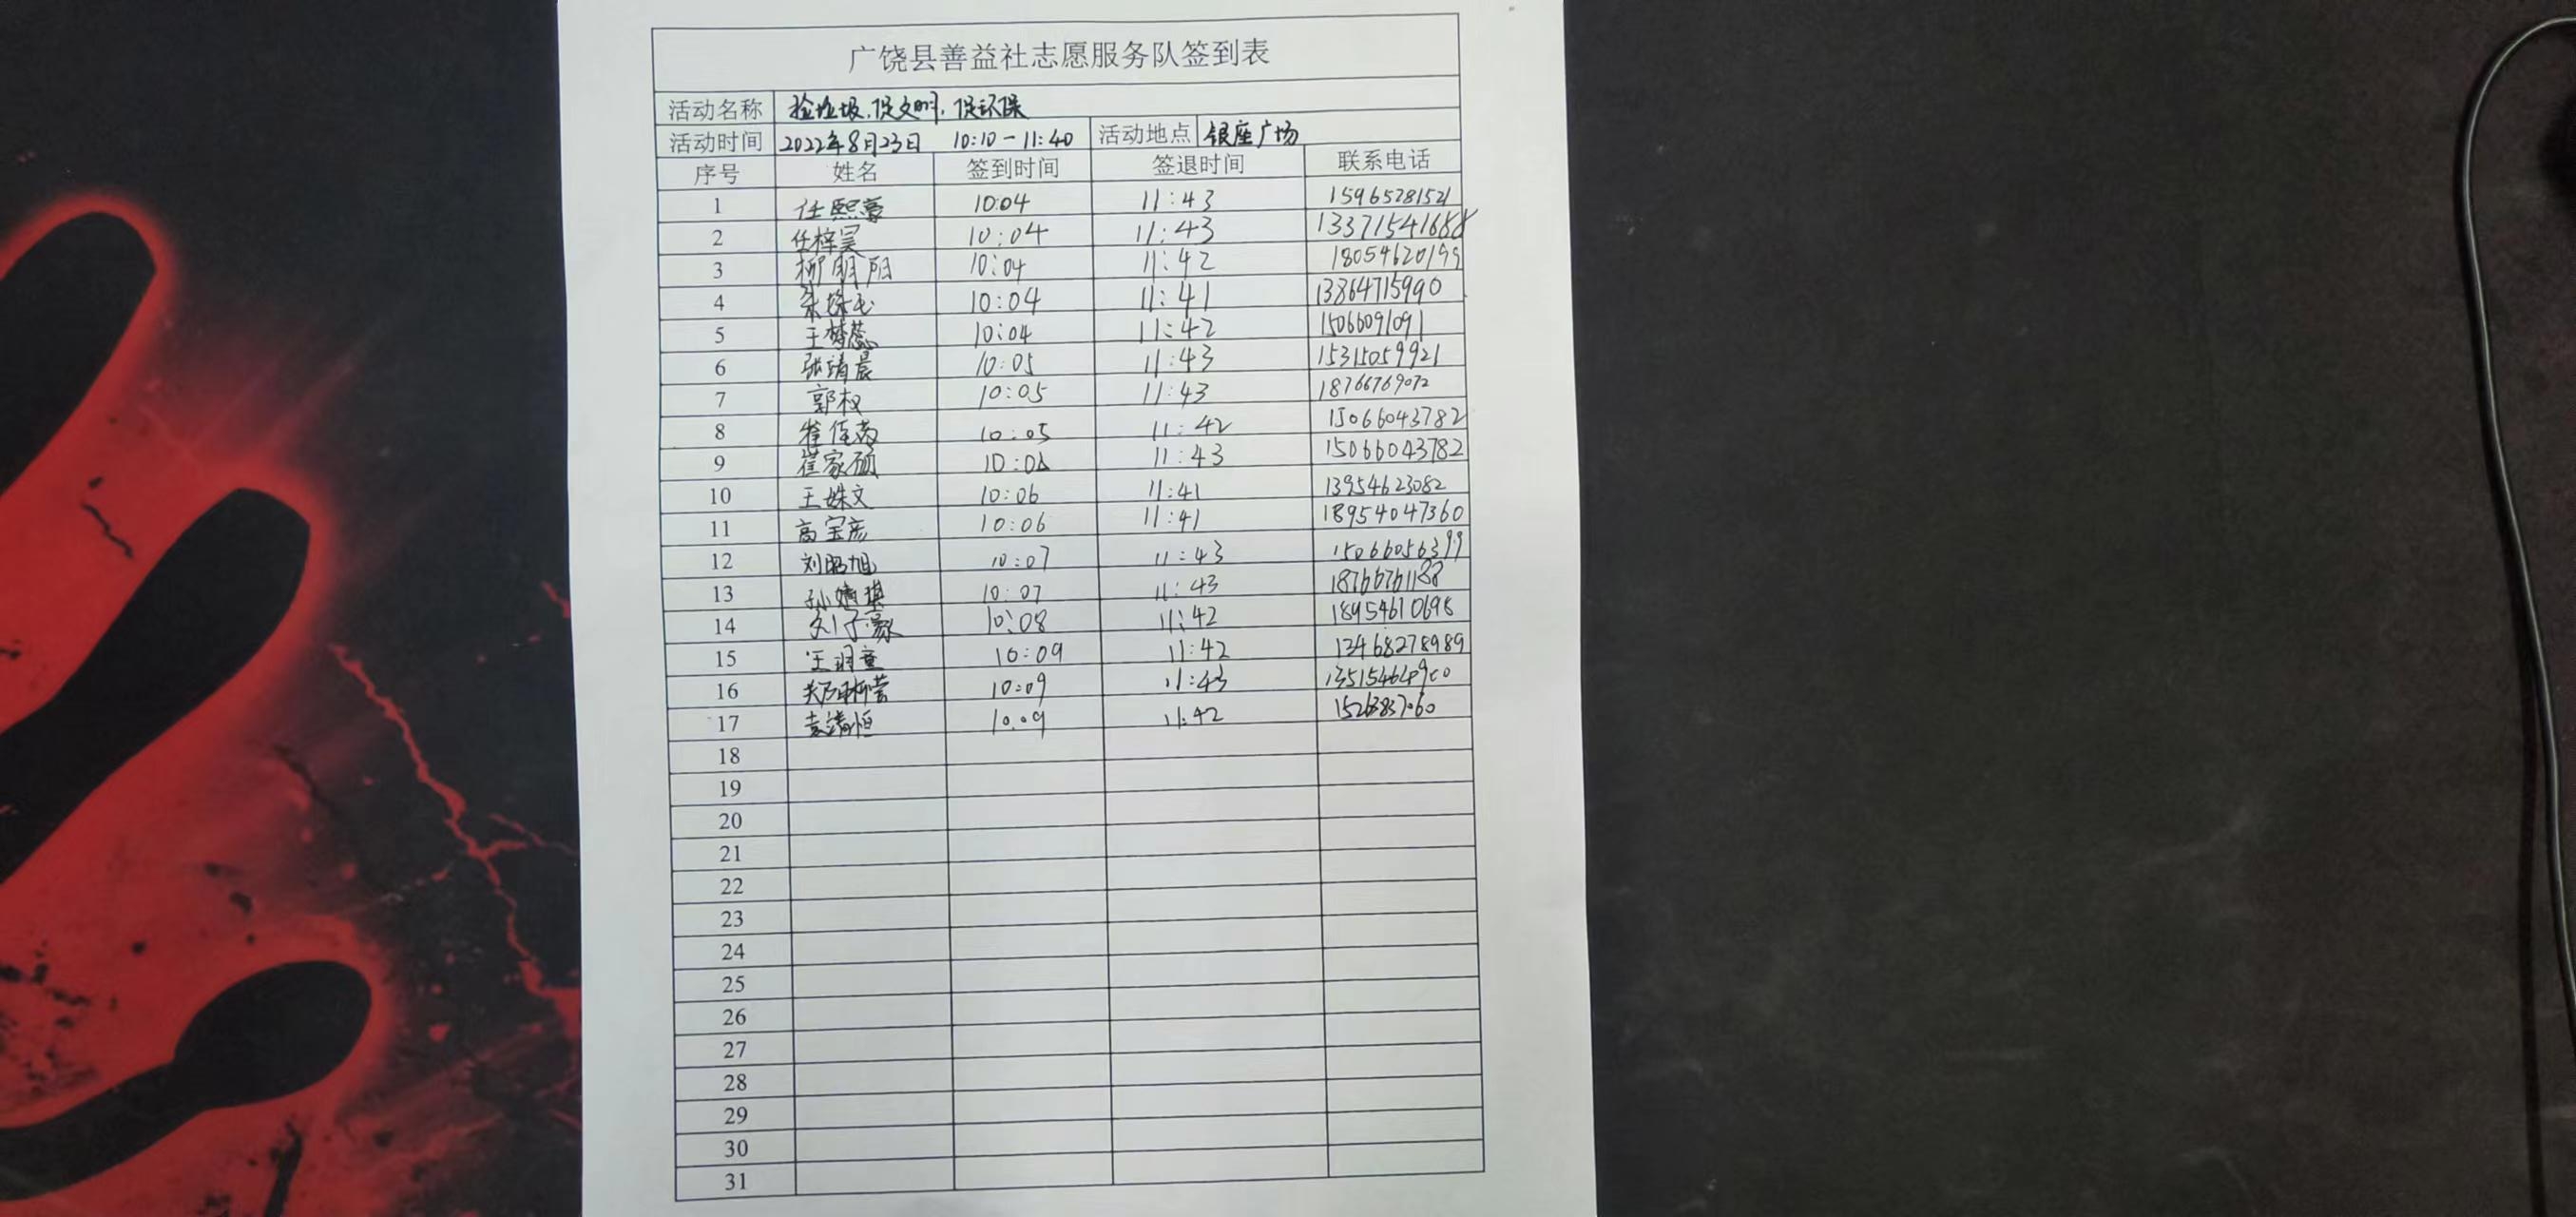 广饶县善益社志愿服务队签到表
活动名称 捡垃圾,促文明,促环保
活动时间 2022年8月23日 10:10-11:40 活动地点 银座广场
序号 姓名 签到时间 签退时间 联系电话
1 任熙蒙 10:04 11:43 15965281521
2 任梓昊 10:04 11:43 13371541688
3 柳明阳 10:04 11:42 18054620199
4 10:04 11:41 13864715990
5 王梦蕊 10:04 11:42 15066091091
6 张靖晨 10:05 11:43 15315059921
7 郭权 10:05 11:43 18766769072
8 崔佳茵 10:05 11:42 15066043782
9 崔家硕 11:43 15066043782
10 王姝文 10:06 11:41 13954623082
11 高宝彦 10:06 11:41 18954047360
12 刘昭旭 10:07 11:43 15066056399
13 孙嫡琪 10:07 11:43 18766761188
14 刘子豪 10:08 11:42 18954610698
15 王羽童 10:09 11:42 13468278989
16 10:09 11:43
17 袁靖恒 10:09 11:42
18
19
20
21
22
23
24
25
26
27
28
29
30
31